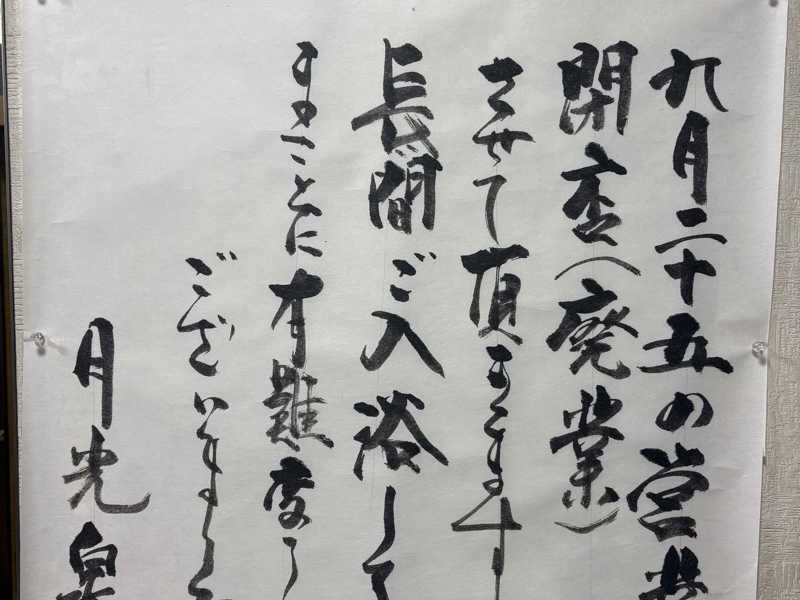 九月二十五の営業
閉店(廃業)
させて頂きます
長間ご入浴して
まことに有難度う
ございました
月光